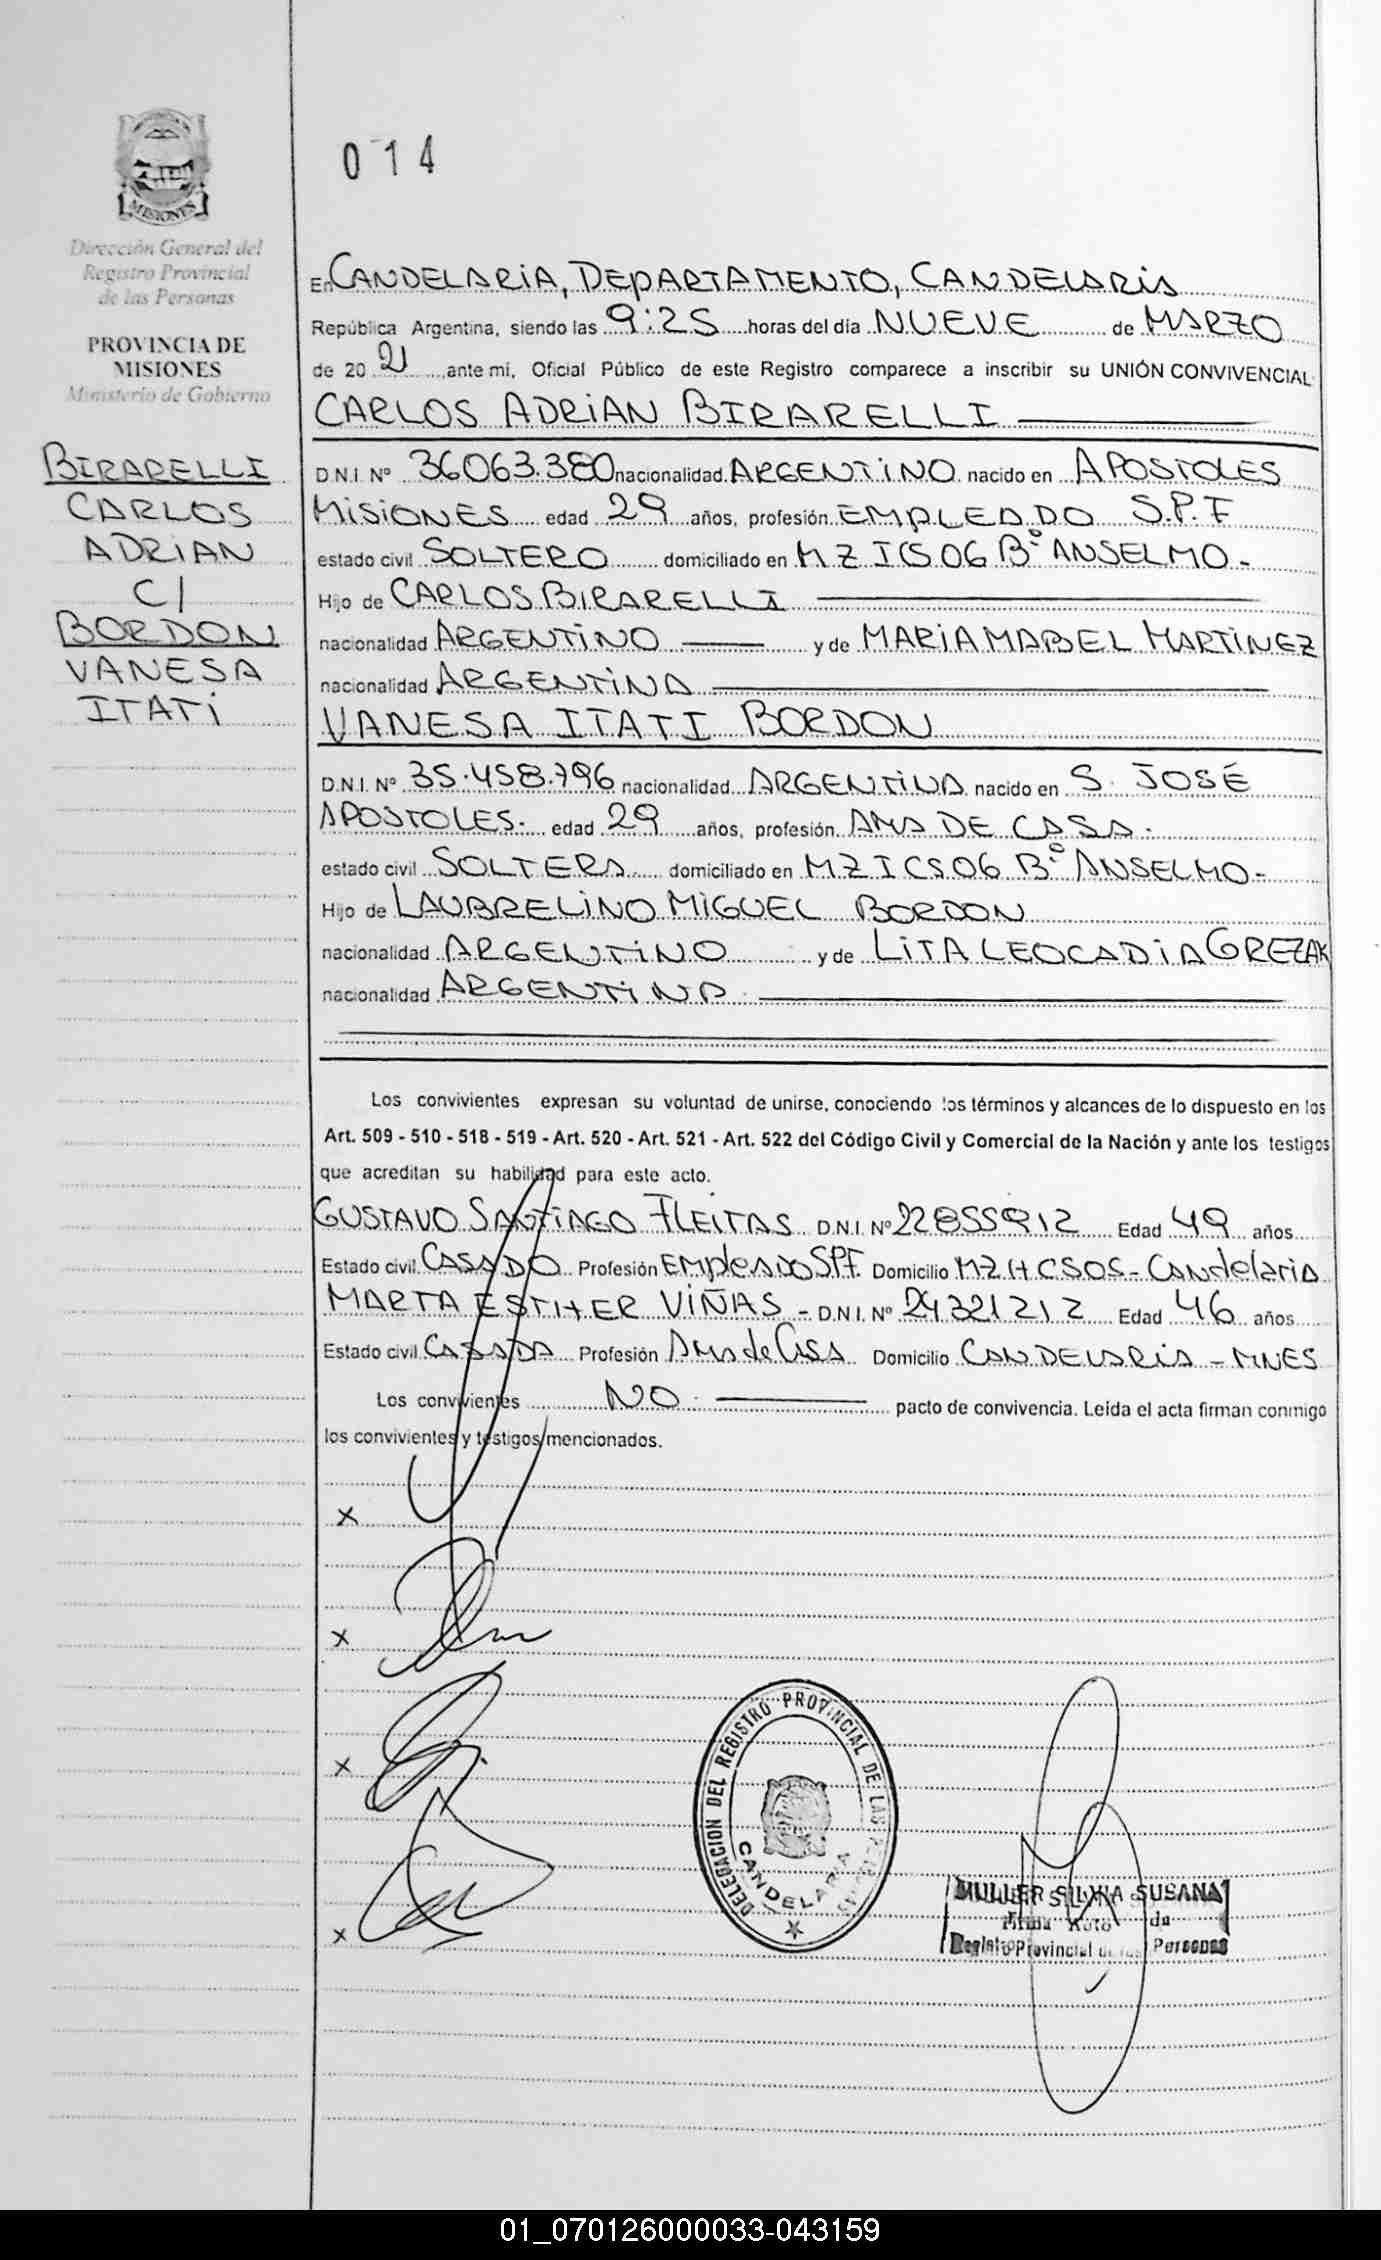 014
MISIONES
Dirección General del
Registro Provincial
de las Personas
PROVINCIA DE
MISIONES
Ministerio de Gobierno
BIRARELLI
CARLOS
ADRIAN
C/
BORDON
VANESA
ITATI
En CANDELARIA, DEPARTAMENTO, CANDELARIA
República Argentina, siendo las 9:25 horas del día NUEVE de MARZO
de 2021, ante mi, Oficial Público de este Registro comparece a inscribir su UNIÓN CONVIVENCIAL
CARLOS ADRIAN BIRARELLI
D.N.I. Nº 36063.380 nacionalidad ARGENTINO nacido en APOSTOLES
MISIONES edad 29 años, profesión EMPLEADO S.P.F
estado civil SOLTERO domiciliado en MZ I CS 06 Bº ANSELMO -
Hijo de CARLOS BIRARELLI
nacionalidad ARGENTINO y de MARIA MABEL MARTINEZ
nacionalidad ARGENTINA
VANESA ITATI BORDON
D.N.I. Nº 35.458.796 nacionalidad ARGENTINA nacido en S. JOSÉ
APOSTOLES. edad 29 años, profesión AMA DE CASA.
estado civil SOLTERA domiciliado en MZ I CS 06 Bº ANSELMO -
Hijo de LAUBRELINO MIGUEL BORDON
nacionalidad ARGENTINO y de LITA LEOCADIA GREZAK
nacionalidad ARGENTINA
Los convivientes expresan su voluntad de unirse, conociendo los términos y alcances de lo dispuesto en los
Art. 509 - 510 - 518 - 519 - Art. 520 - Art. 521 - Art. 522 del Código Civil y Comercial de la Nación y ante los testigos
que acreditan su habilidad para este acto.
GUSTAVO SANTIAGO FLEITAS D.N.I. Nº 22855912 Edad 49 años
Estado civil CASADO Profesión EMPLEADO SPF. Domicilio MZ H CS 05 - Candelaria
MARTA ESTHER VIÑAS - D.N.I. Nº 24321212 Edad 46 años
Estado civil CASADA Profesión AMA de CASA Domicilio CANDELARIA - MNES
Los convivientes NO pacto de convivencia. Leída el acta firman conmigo
los convivientes y testigos mencionados.
x
x
x
x
DELEGACION DEL REGISTRO PROVINCIAL DE LAS PERSONAS
CANDELARIA
MULLER SILVIA SUSANA
Firma
Registro Provincial de las Personas
01_070126000033-043159